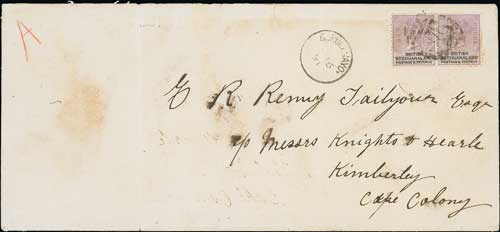 A
BULUWAYO.
BRITISH
BECHUANALAND
POSTAGE & REVENUE
BRITISH
BECHUANALAND
POSTAGE & REVENUE
E R Renny Tailyour Esqre
c/o Messrs Knights & Hearle
Kimberley
Cape Colony